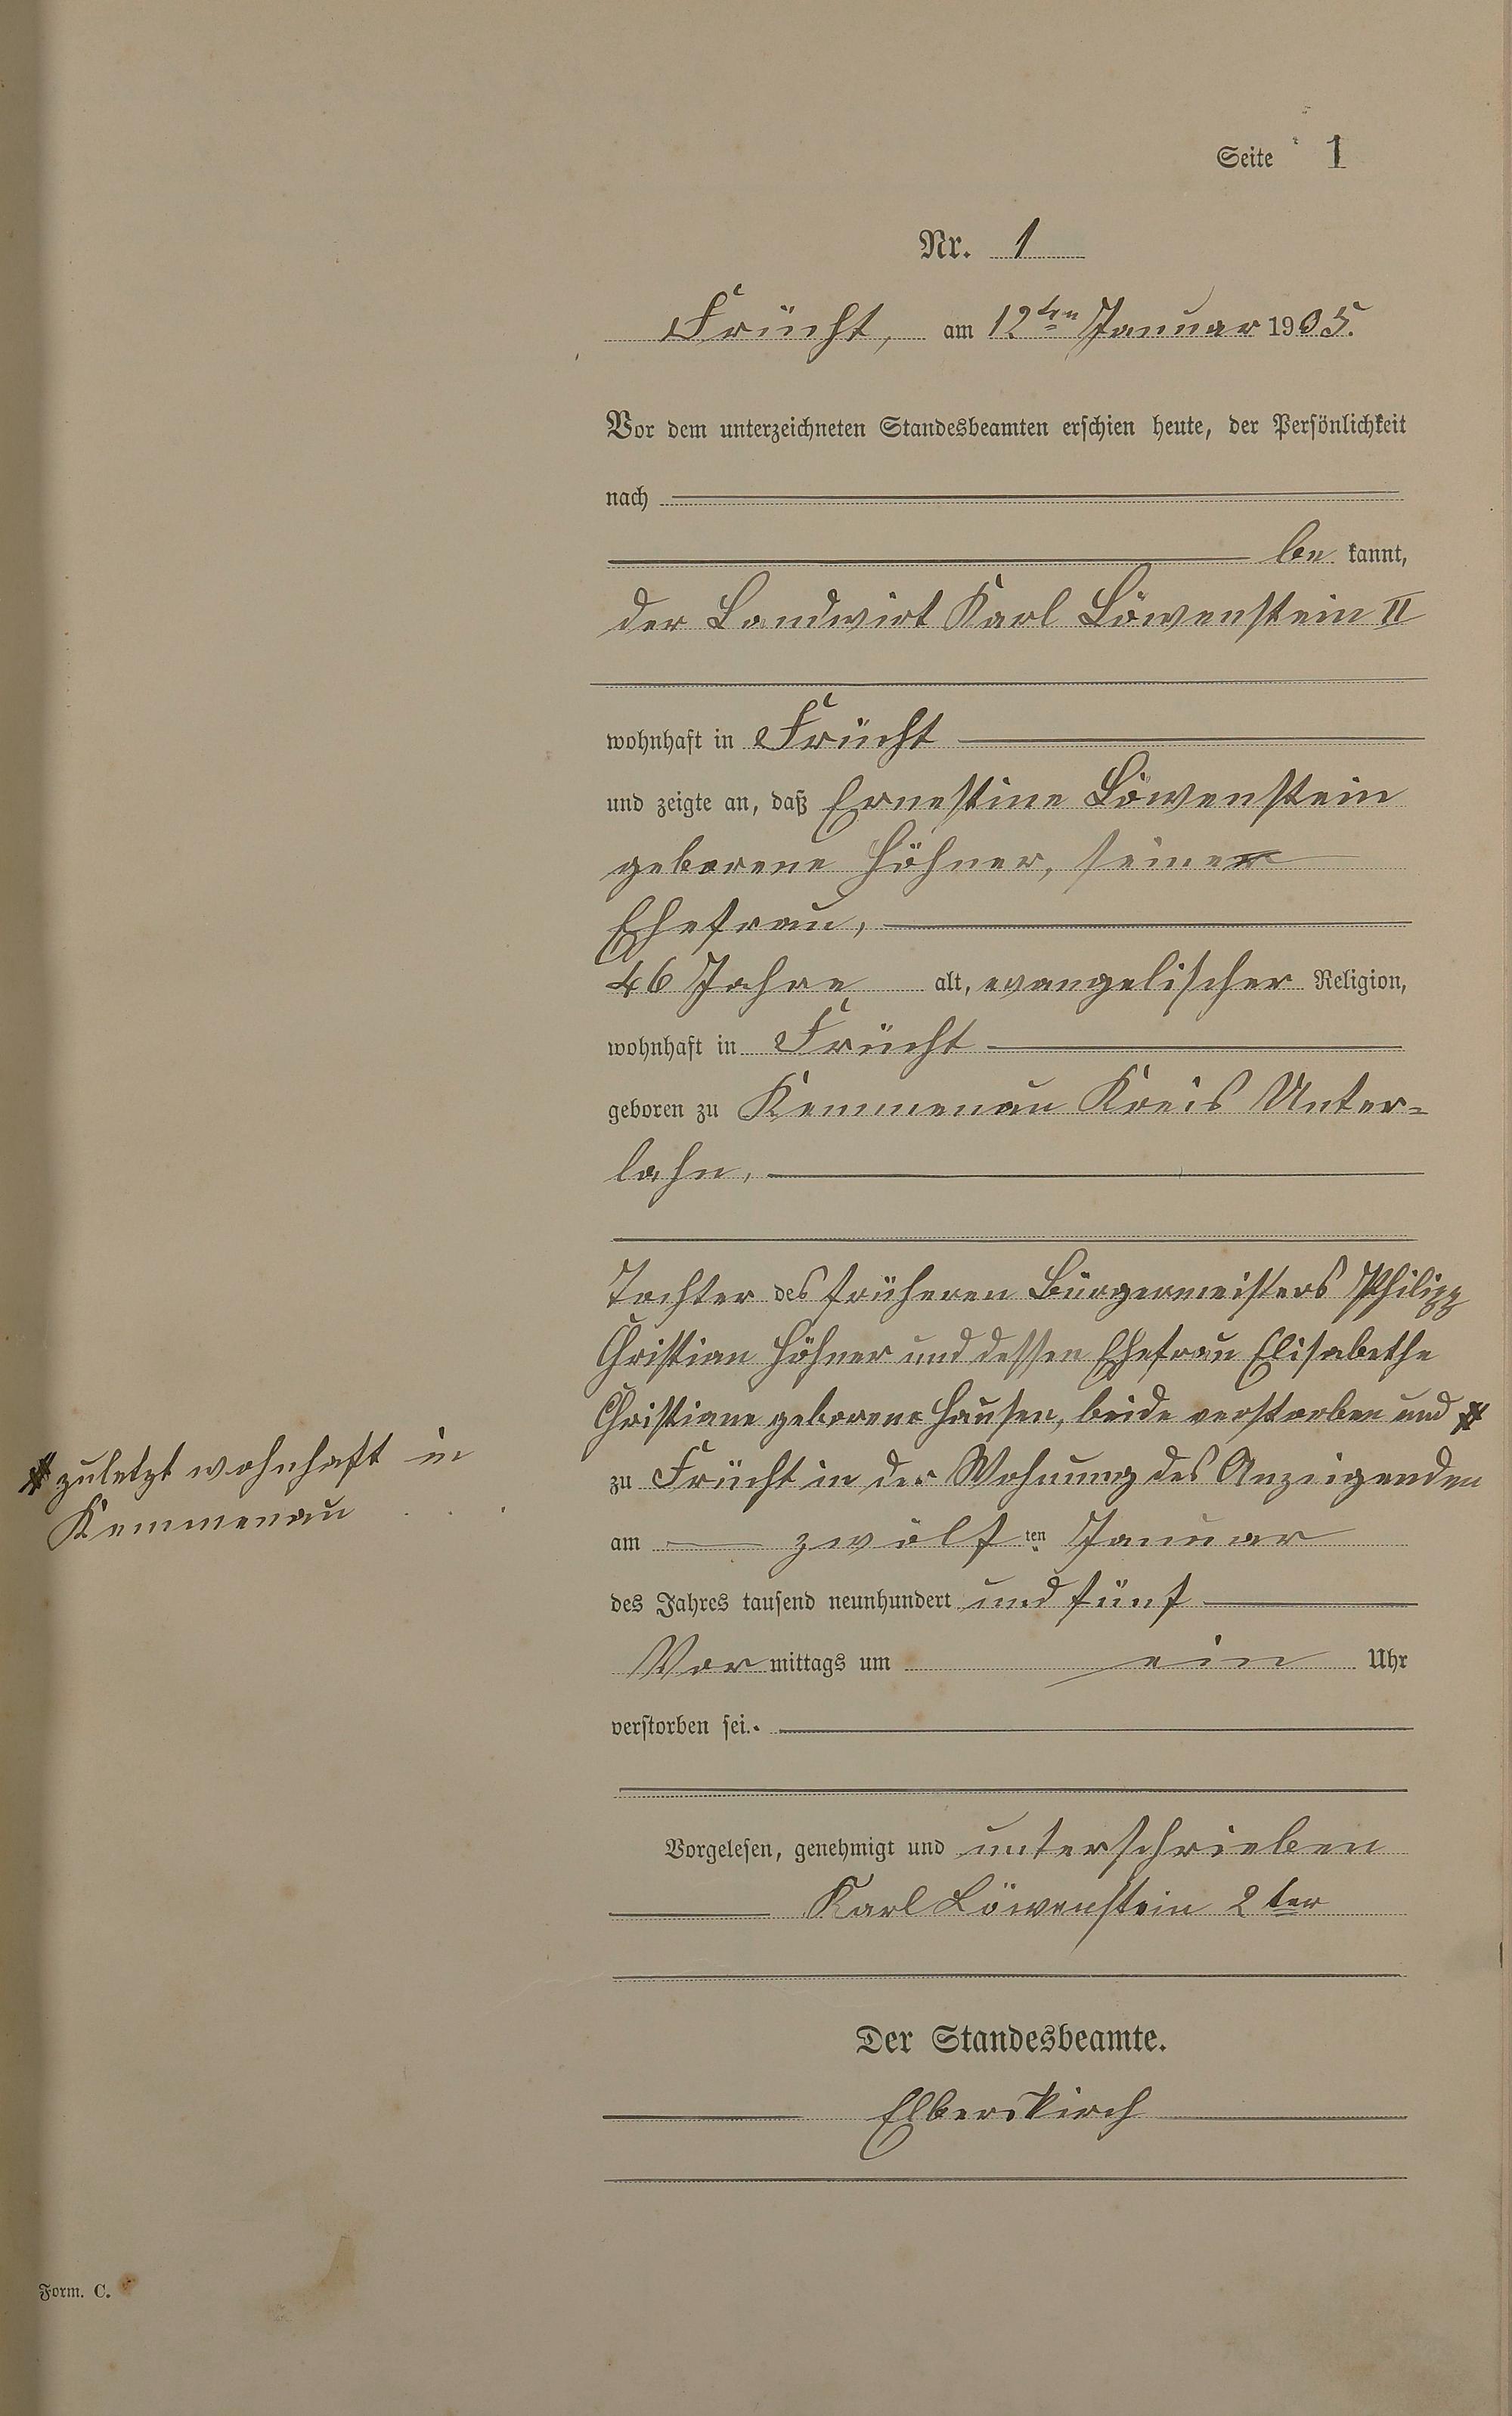 Seite 1
Nr. 1
Frücht, am 12ten Januar 1905.
Vor dem unterzeichneten Standesbeamten erschien heute, der Persönlichkeit
nach
be kannt,
der Landwirt Karl Löwenstein II
wohnhaft in Frücht
und zeigte an, daß Ernestine Löwenstein
geborene Höhner, seine
Ehefrau,
46 Jahre alt, evangelischer Religion,
wohnhaft in Frücht
geboren zu Kemmenau Kreis Unter-
lahn,
Tochter des früheren Bürgermeisters Philipp
Christian Höhner und dessen Ehefrau Elisabethe
Christiane geborene Hausen, beide verstorben und #
# zuletzt wohnhaft in
Kemmenau
zu Frücht in der Wohnung des Anzeigenden
am zwölf ten Januar
des Jahres tausend neunhundert und fünf
Vor mittags um ein Uhr
verstorben sei.
Vorgelesen, genehmigt und unterschrieben
Karl Löwenstein 2ter
Der Standesbeamte.
Elberskirch
Form. C.